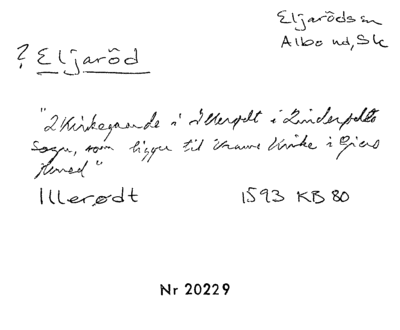 Eljarödsn
Albo hd, Sk
? Eljaröd
"2 Kirkegaarde i Illerødt i Linderødts
Sogn, som ligger til Vrams Kirke i Giers
Herred"
Illerødt 1593 KB 80
Nr 20229